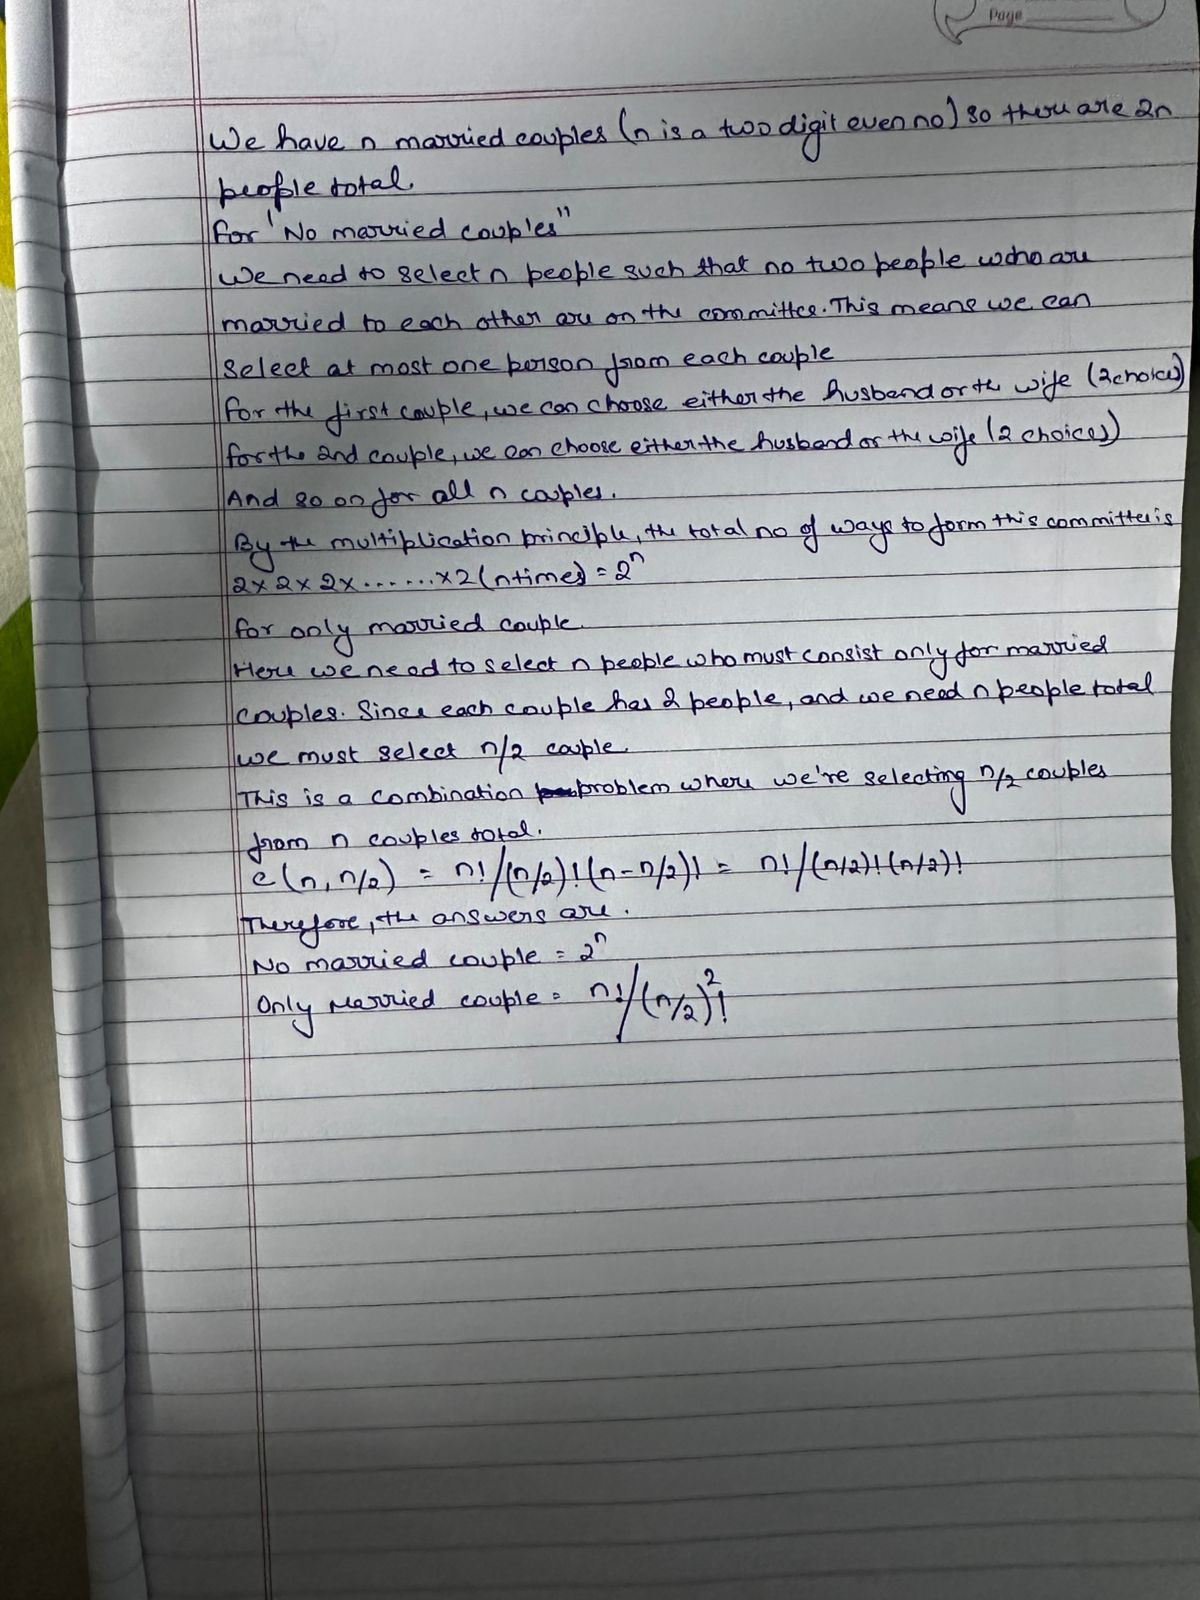 Page
We have n married couples (n is a two digit even no) so there are 2n
people total.
for "No married couples"
we need to select n people such that no two people who are
married to each other are on the committee. This means we can
select at most one person from each couple
for the first couple, we can choose either the husband or the wife (2 choices)
for the 2nd couple, we can choose either the husband or the wife (2 choices)
And so on for all n couples.
By the multiplication principle, the total no of ways to form this committee is
2x2x2x.......x2 (n times) = 2ⁿ
for only married couple.
Here we need to select n people who must consist only for married
couples. Since each couple has 2 people, and we need n people total
we must select n/2 couple.
This is a combination problem where we're selecting n/2 couples
from n couples total.
c(n, n/2) = n!/(n/2)!(n-n/2)! = n!/(n/2)!(n/2)!
Therefore, the answers are.
No married couple = 2ⁿ
Only Married couple = n!/(n/2)²!